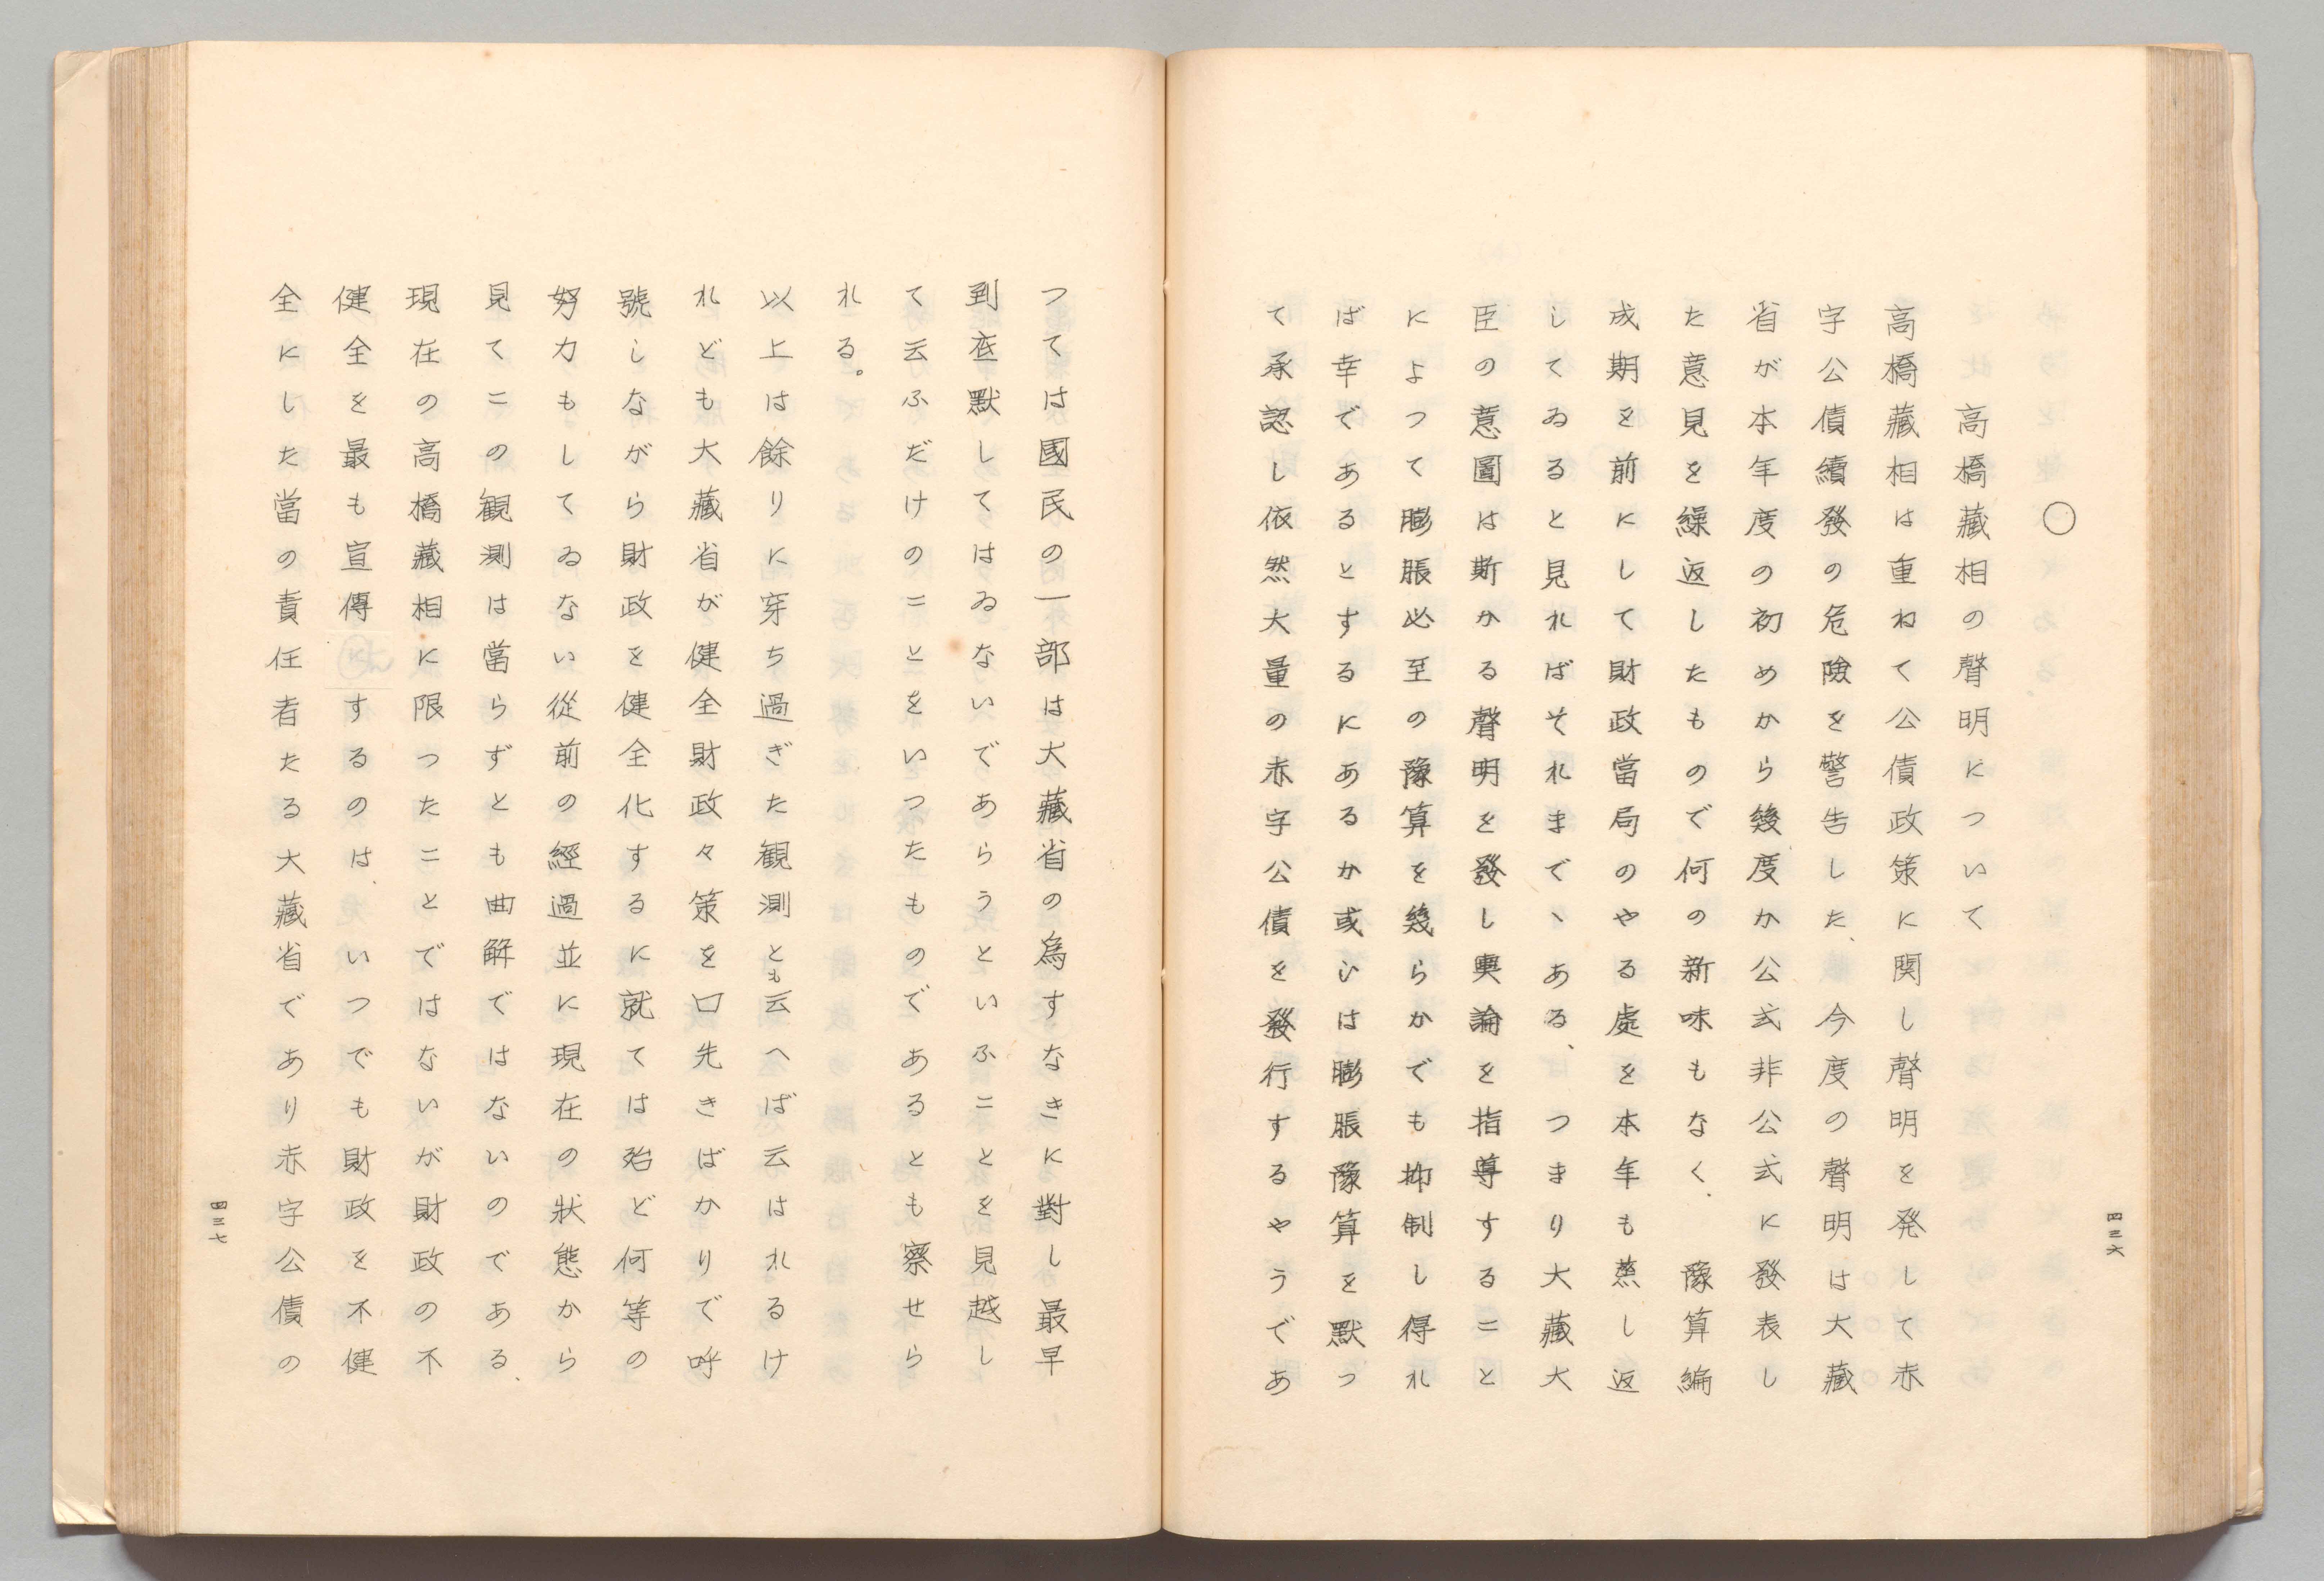 ○
高橋藏相の聲明について
高橋藏相は重ねて公債政策に関し聲明を発して赤
字公債續發の危險を警告した、今度の聲明は大藏
省が本年度の初めから幾度か公式非公式に發表し
た意見を繰返したもので何の新味もなく、豫算編
成期を前にして財政當局のやる處を本年も蒸し返
してゐると見ればそれまでゝある、つまり大藏大
臣の意圖は斯かる聲明を發し輿論を指導すること
によつて膨脹必至の豫算を幾らかでも抑制し得れ
ば幸であるとするにあるか或ひは膨脹豫算を默つ
て承認し依然大量の赤字公債を發行するやうであ
四三六
つては國民の一部は大藏省の為すなきに對し最早
到底默してはゐないであらうといふことを見越し
て云ふだけのことをいつたものであるとも察せら
れる。
以上は餘りに穿ち過ぎた観測とも云へば云はれるけ
れども大藏省が健全財政々策を口先きばかりで呼
號しながら財政を健全化するに就ては殆ど何等の
努力もしてゐない從前の經過並に現在の狀態から
見てこの観測は當らずとも曲解ではないのである、
現在の高橋藏相に限つたことではないが財政の不
健全を最も宣傳するのは、いつでも財政を不健
全にした當の責任者たる大藏省であり赤字公債の
四三七